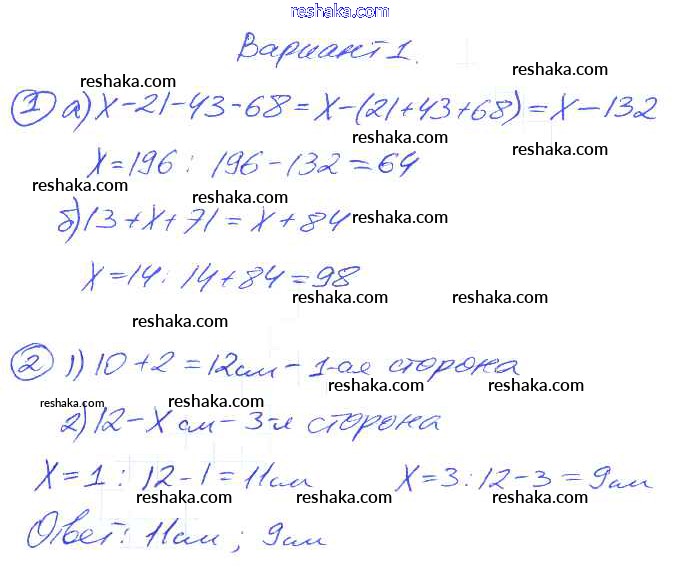 reshaka.com
Вариант 1.
reshaka.com reshaka.com
① а) x-21-43-68=x-(21+43+68)=x-132
reshaka.com reshaka.com
x=196: 196-132=64
reshaka.com reshaka.com
б) 13+x+71=x+84 reshaka.com
x=14: 14+84=98
reshaka.com reshaka.com
reshaka.com
② 1) 10+2=12см-1-ая сторона
reshaka.com reshaka.com
reshaka.com reshaka.com
2) 12-x см-3-я сторона
x=1: 12-1=11см x=3: 12-3=9см
reshaka.com reshaka.com reshaka.com
Ответ: 11см; 9см